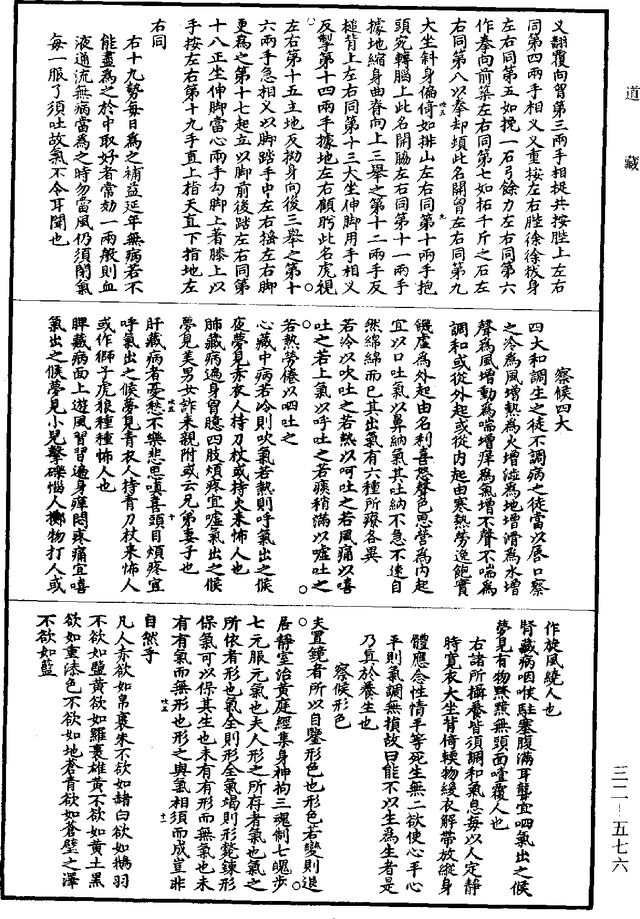 道藏
又翻覆向胷第三兩手相捉共按䏶上左右
同第四兩手相叉叉重按左右䏶徐徐捩身
左右同第五如挽一石弓餘力左右同第六
作拳向前築左右同第七如拓千斤之石左
右同第八以拳却頓此名開胷左右同第九
大坐斜身偏倚如排山左右同第十兩手抱
頭宛轉䐉上此名開脇左右同第十一兩手
據地縮身曲脊向上三舉之第十二兩手反
槌背上左右同第十三大坐伸脚用手相叉
反掣第十四兩手據地左右顧眄此名虎視
左右第十五主地反拗身向後三舉之第十
六兩手急相叉以脚踏手中左右接左右脚
更為之第十七起立以脚前後踏左右同第
十八正坐伸脚當心兩手勾脚上著膝上以
手按左右第十九手直上指天直下指地左
右同
右十九勢每日為之補益延年無病若不
能盡為之於中取好者常効一兩般則血
液通流無病當為之時勿當風仍須閉氣
每一服了須吐故氣不令耳聞也
察候四大
四大和調生之徒不調病之徒當以唇口察
之冷為風增熱為火增澁為地增滑為水增
聲為風增動為喘增痒為氣增不聲不喘為
調和或從外起或從内起由寒熱勞逸飽實
饑虛為外起由名利喜怒聲色思營為内起
宜以口吐氣以鼻納氣其吐納不急不速自
然綿綿而已其出氣有六種所療各異
若冷以吹吐之若熱以呵吐之若風痛以嘻
吐之若上氣以呼吐之若痰稍滿以噓吐之
若熱勞倦以呬吐之
心藏中病若冷則吹氣若熱則呼氣出之候
夜夢見赤衣人持刀杖或持火来怖人也
肺藏病遍身曾臆四肢煩疼宜噓氣出之候
夢見美男女詐来親附或云兄弟妻子也
肝藏病者憂愁不樂悲思嗔喜頭目煩疼宜
呼氣出之候夢見青衣人持青刀杖来怖人
或作獅子虎狼種種怖人也
脾藏病面上遊風習習遍身痒悶疼痛宜嘻
氣出之候夢見小兒擊礫惱人擲物打人或
作旋風繞人也
腎藏病咽喉駐塞腹滿耳聾宜呬氣出之候
夢見有物黰黰無頭面噎覆人也
右諸所攝養皆須調和氣息每以人定靜
時寬衣大坐背倚輭物緩衣解帶放縱身
體應念性情平等死生無二欲使心手心
平則氣調無損故曰能不以生為生者是
乃真於養生也
察候形色
夫置鏡者所以自鑒形色也形色若變則退
居靜室治黃庭經集身神拘三魂制七魄步
七元服元氣也夫人形之所存者氣也氣之
所依者形也氣全則形全氣竭則形斃鍊形
保氣可以保其生也未有有形而無氣也未
有有氣而無形也形之與氣相須而成豈非
自然乎
凡人赤欲如帛裹朱不欲如赭白欲如鵝羽
不欲如鹽黃欲如羅裹雄黃不欲如黃土黑
欲如重漆色不欲如地蒼青欲如蒼璧之澤
不欲如藍
三二–五七六